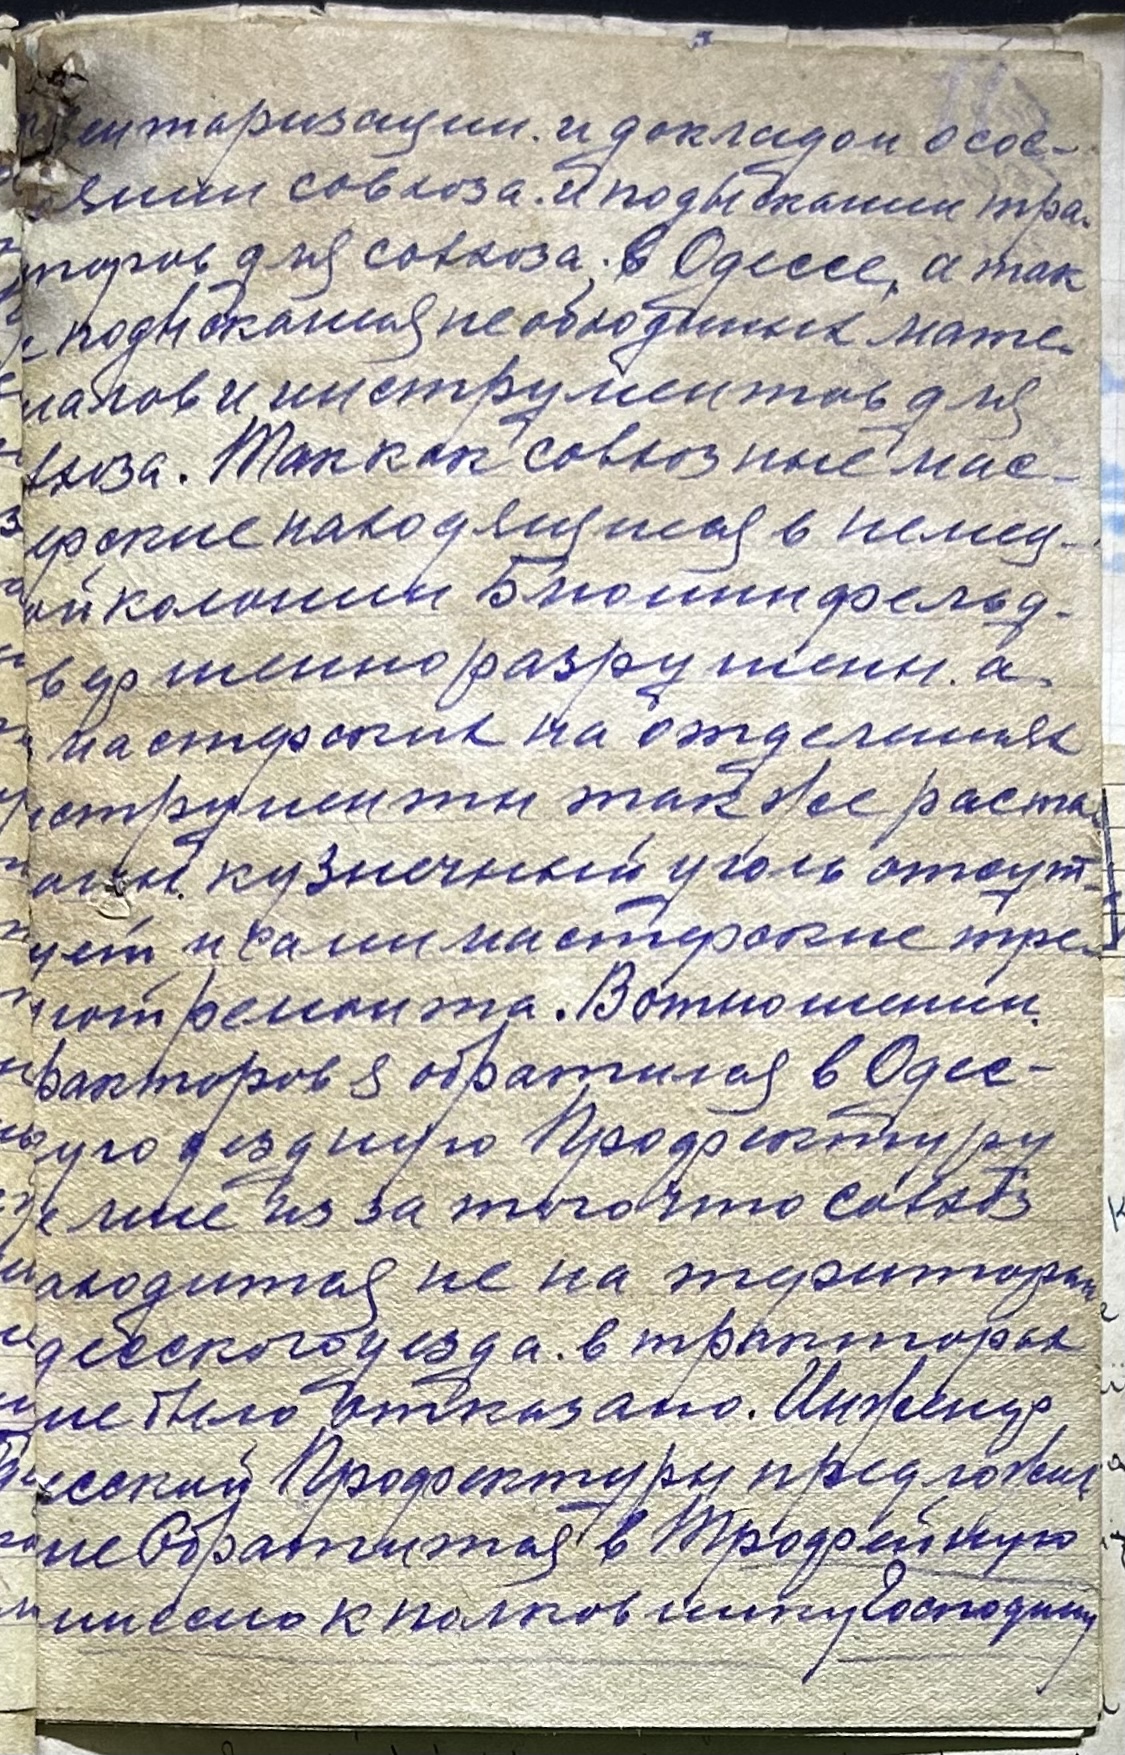 ентаризации. и докладом о сос-
янии совхоза. и подыскании тра-
торов для совхоза. в Одессе, а так
подыскания необходимых мате-
иалов и инструментов для
вхоза. Так как совхозные мас-
ерские находящиеся в немец-
ой колонии Блюминфельд-
вершенно разрушен. а.
мастерских на отделениях
струменты так же раста-
ены. кузнечный уголь отсут-
ует и сами мастерские тре-
уют ремонта. В отношении
ракторов я обратился в Одес-
ую уездную Профектуру
мне из за того что совхоз
аходится не на територии
десского уезда. в тракторах
не было отказано. Инженер
десской Профектуры предложил
не Обратится в Трофейную
миссию к полковнику Господину